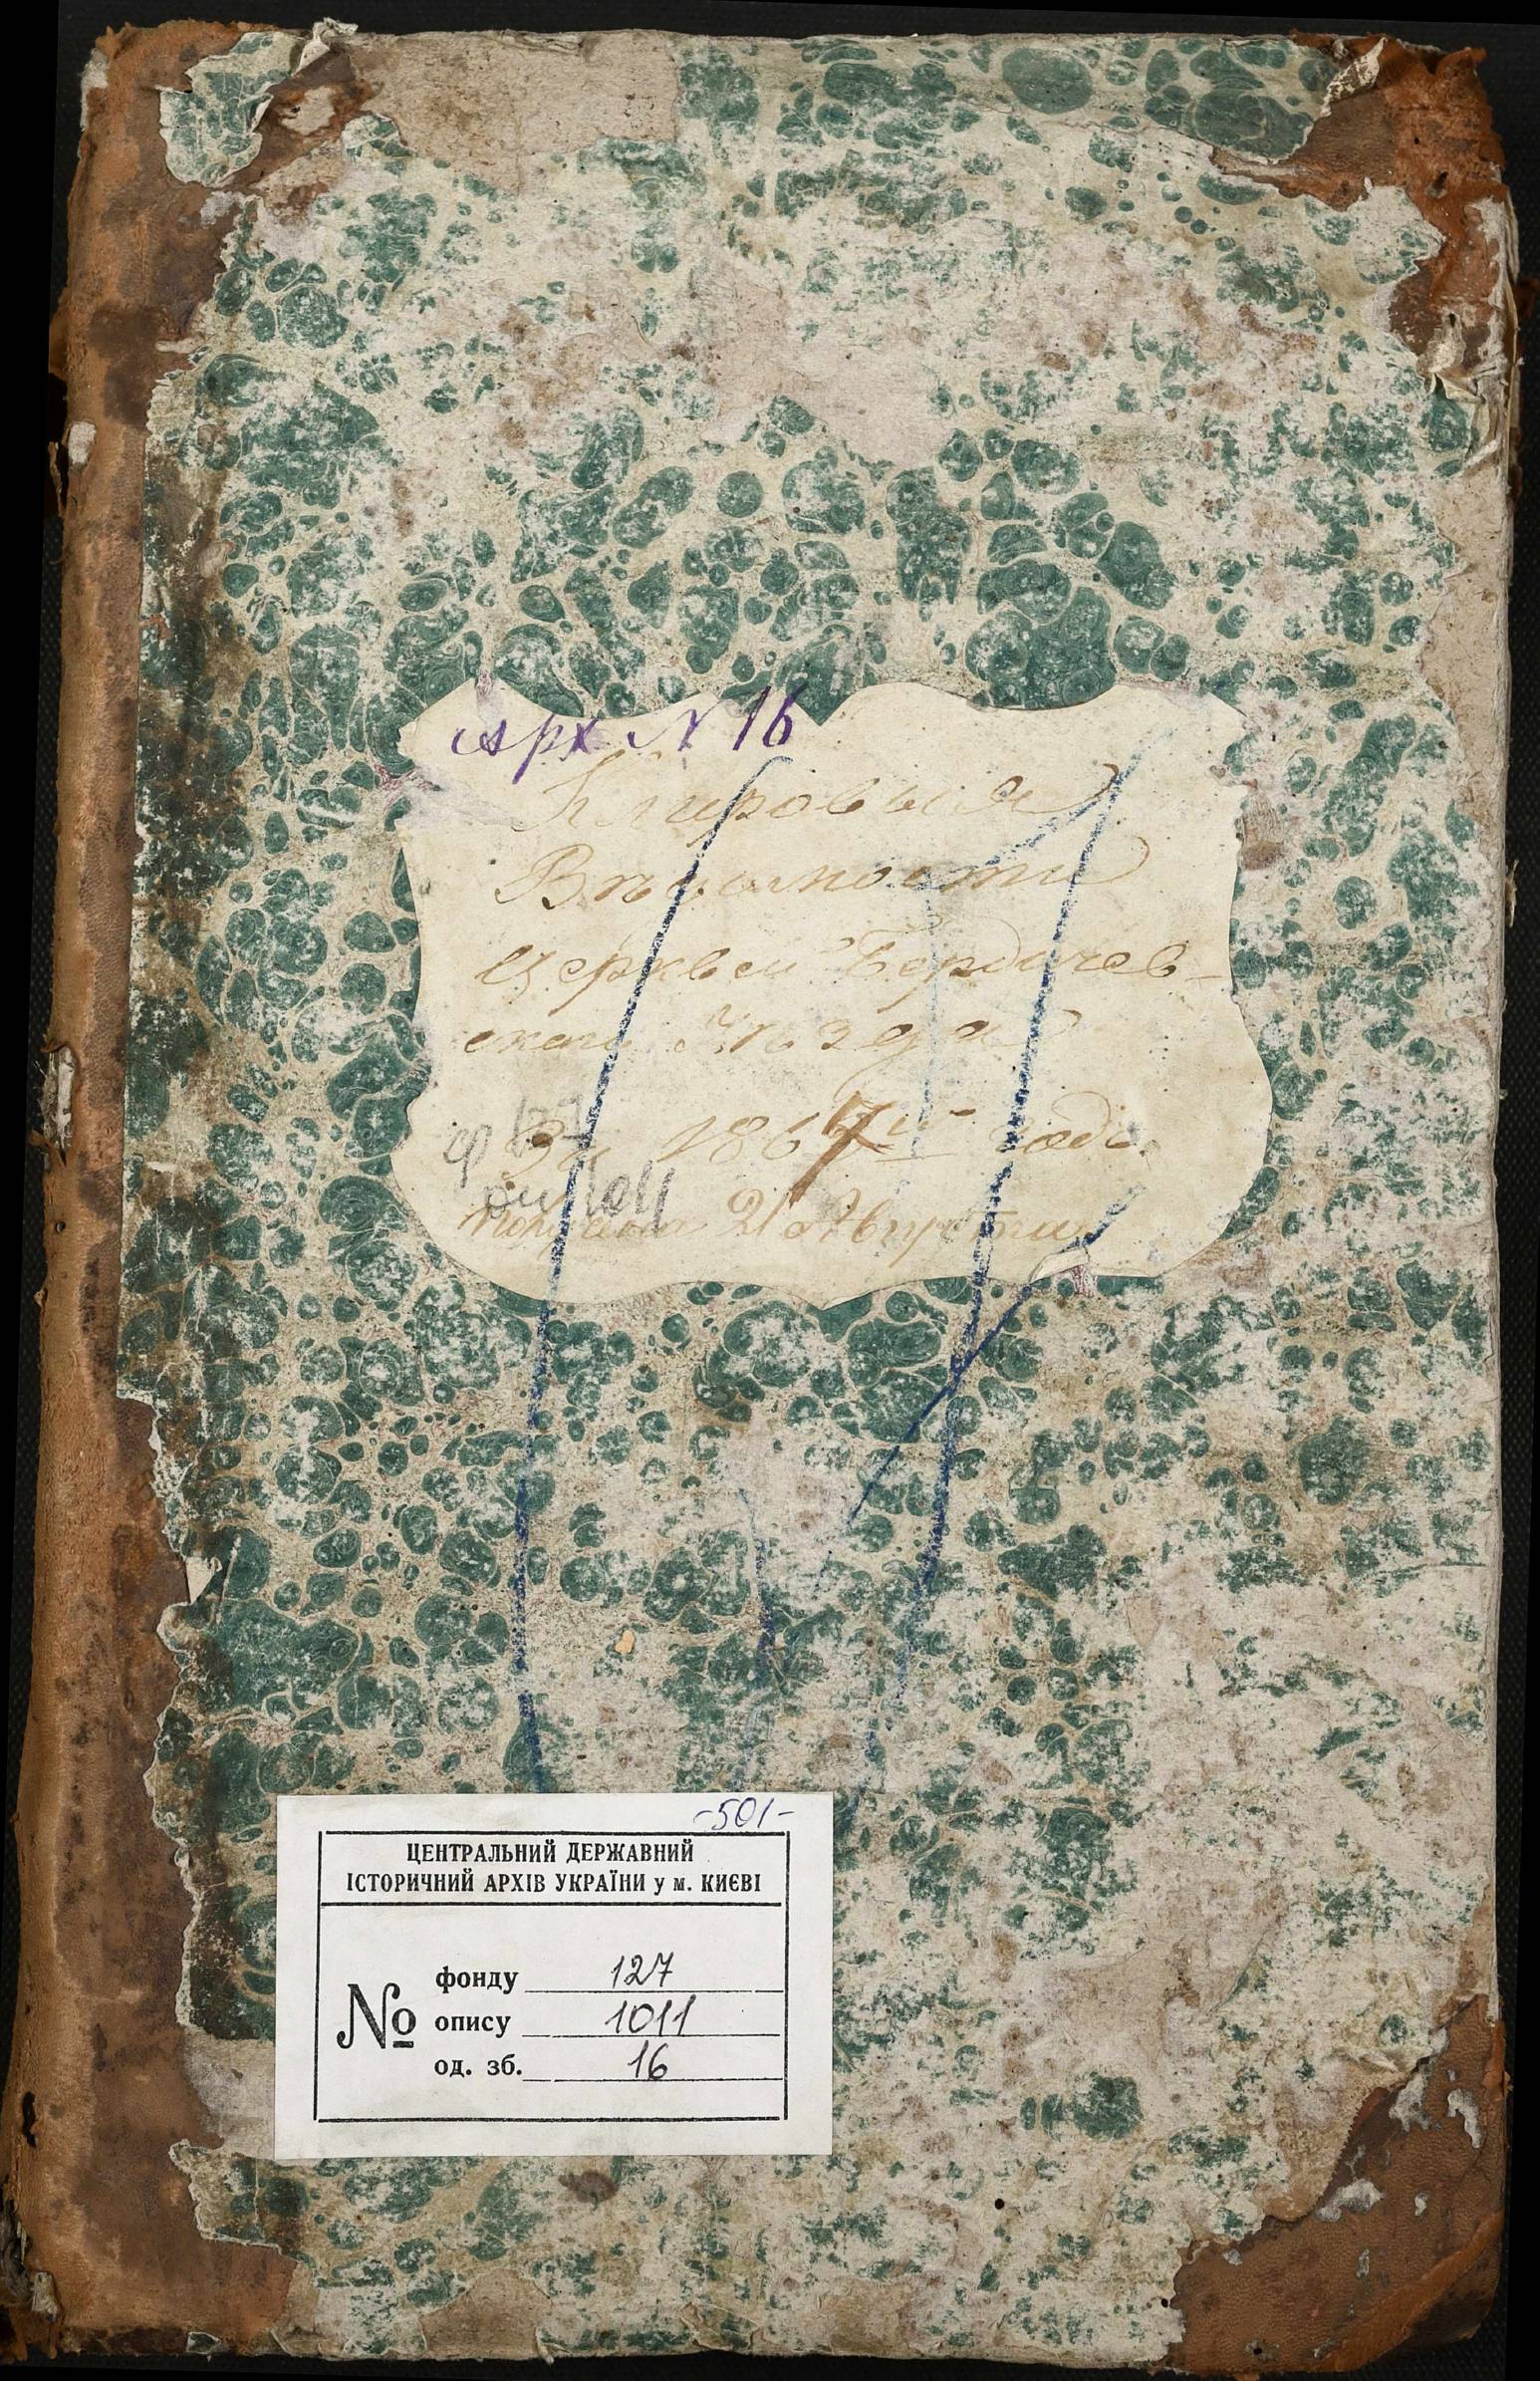 Арх N 16
Клировыя
Вѣдомости
Церквей Бердичев-
скаго Уѣзда
ф 127
За 1867й годъ.
оп 1011
21 Августа
-501-
ЦЕНТРАЛЬНИЙ ДЕРЖАВНИЙ
ІСТОРИЧНИЙ АРХІВ УКРАЇНИ у м. КИЄВІ
№
фонду 127
опису 1011
од. зб. 16